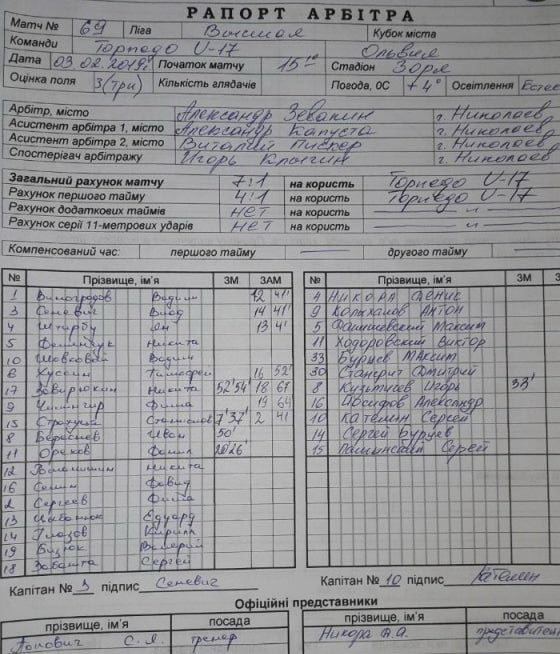 РАПОРТ АРБІТРА
Матч № 69 Ліга Высшая Кубок міста
Команди Торпедо U-17 Ольвия
Дата 03.02.2019г Початок матчу 15 Стадіон Зоря
Оцінка поля 3(три) Кількість глядачів Погода, 0С +4° Освітлення Естес
Арбітр, місто Александр Зевакин г. Николаев
Асистент арбітра 1, місто Александр Капуста г. Николаев
Асистент арбітра 2, місто Виталий Пискер г. Николаев
Спостерігач арбітражу Игорь г. Николаев
Загальний рахунок матчу 7:1 на користь Торпедо U-17
Рахунок першого тайму 4:1 на користь Торпедо U-17
Рахунок додаткових таймів нет на користь — " —
Рахунок серії 11-метрових ударів нет на користь — " —
Компенсований час: першого тайму — другого тайму —
№ Прізвище, ім'я ЗМ ЗАМ № Прізвище, ім'я ЗМ
1 Виноградов Вадим 12 41' 4 Никора Денис
3 Сеневич Влад 14 41' 9 Колыханов Антон
4 Штирбу Ян 13 41' 5 Максим
5 Никита 11 Ходоровский Виктор
10 Шовковий Вадим 33 Бурцев Максим
6 Тимофей 16 52' 30 Дмитрий
17 Никита 52' 54' 18 67 8 Игорь 33'
9 19 64 16 Иосифов Александр
15 Станислав 7' 37' 2 41 10 Кателин Сергей
8 Береснев Иван 50' 14 Сергей Бурцев
11 Орехов 20' 26' 15 Сергей
12 Никита
16 Семин
2 Сергеев
13 Эдуард
14 Глазов Кирилл
19 Валерий
18 Сергей
Капітан № 3 підпис Сеневич Капітан № 10 підпис Кателин
Офіційні представники
прізвище, ім'я посада прізвище, ім'я посада
Попович С.Я. тренер Никора А.А. представител